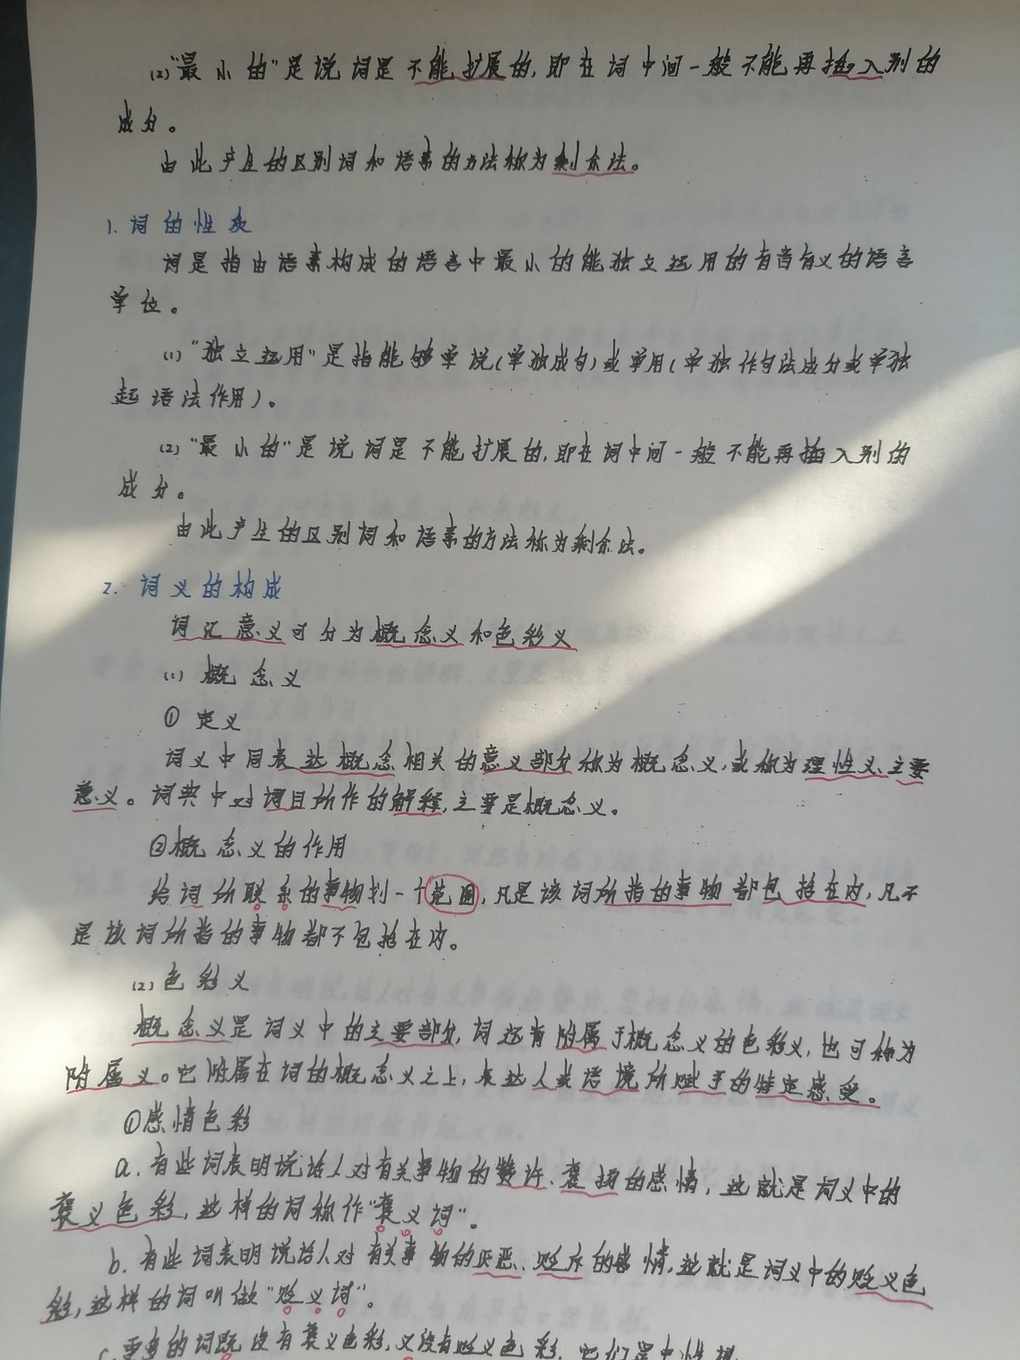 (2)“最小的”是说词是不能扩展的,即在词中间一般不能再插入别的
成分。
由此产生的区别词和语素的方法称为剩余法。
1.词的性质
词是指由语素构成的语言中最小的能独立运用的有音有义的语言
单位。
(1)“独立运用”是指能够单说(单独成句)或单用(单独作句法成分或单独
起语法作用)。
(2)“最小的”是说词是不能扩展的,即在词中间一般不能再插入别的
成分。
由此产生的区别词和语素的方法称为剩余法。
2.词义的构成
词汇意义可分为概念义和色彩义
(1)概念义
①定义
词义中同表达概念相关的意义部分称为概念义,或称为理性义、主要
意义。词典中对词目所作的解释,主要是概念义。
②概念义的作用
给词所联系的事物划一个范围,凡是该词所指的事物都包括在内,凡不
是该词所指的事物都不包括在内。
(2)色彩义
概念义是词义中的主要部分,词还有附属于概念义的色彩义,也可称为
附属义。它附属在词的概念义之上,表达人或语境所赋予的特定感受。
①感情色彩
a.有些词表明说话人对有关事物的赞许、褒扬的感情,这就是词义中的
褒义色彩,这样的词称作“褒义词”。
b.有些词表明说话人对有关事物的厌恶、贬斥的感情,这就是词义中的贬义色
彩,这样的词叫做“贬义词”。
c.更多的词既没有褒义色彩,又没有贬义色彩,它们是中性